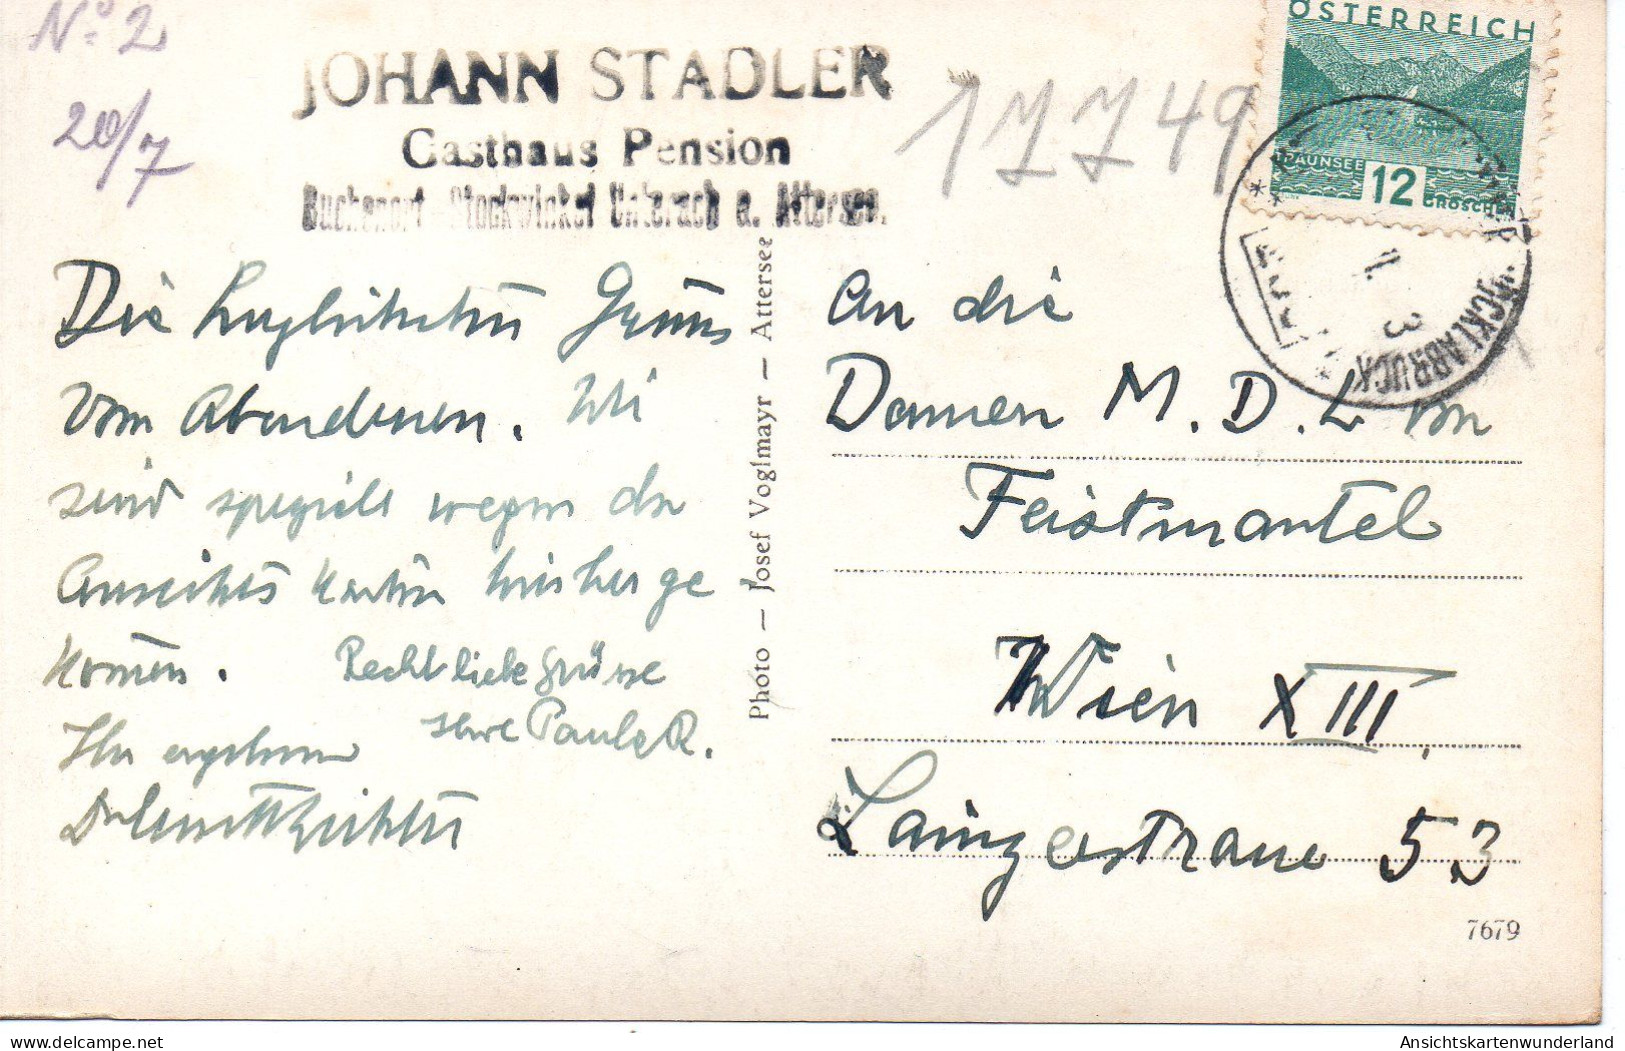 No. 2
20/7
JOHANN STADLER
Gasthaus Pension
Buchenort Stockwinkel Unterach a. Attersee.
17749
ÖSTERREICH
TRAUNSEE
12
GROSCHEN
VÖCKLABRUCK
Die Grüsse
vom Abendessen. Wir
sind speziell wegen der
Ansichts Karten hierher ge
kommen.
Recht liebe Grüsse
Ihre Paula R.
Ihr ergebener
Photo — Josef Voglmayr — Attersee
An die
Damen M. D. L von
Feistmantel
Wien XIII
Lainzerstrasse 53
7679
delcampe.net
Ansichtskartenwunderland